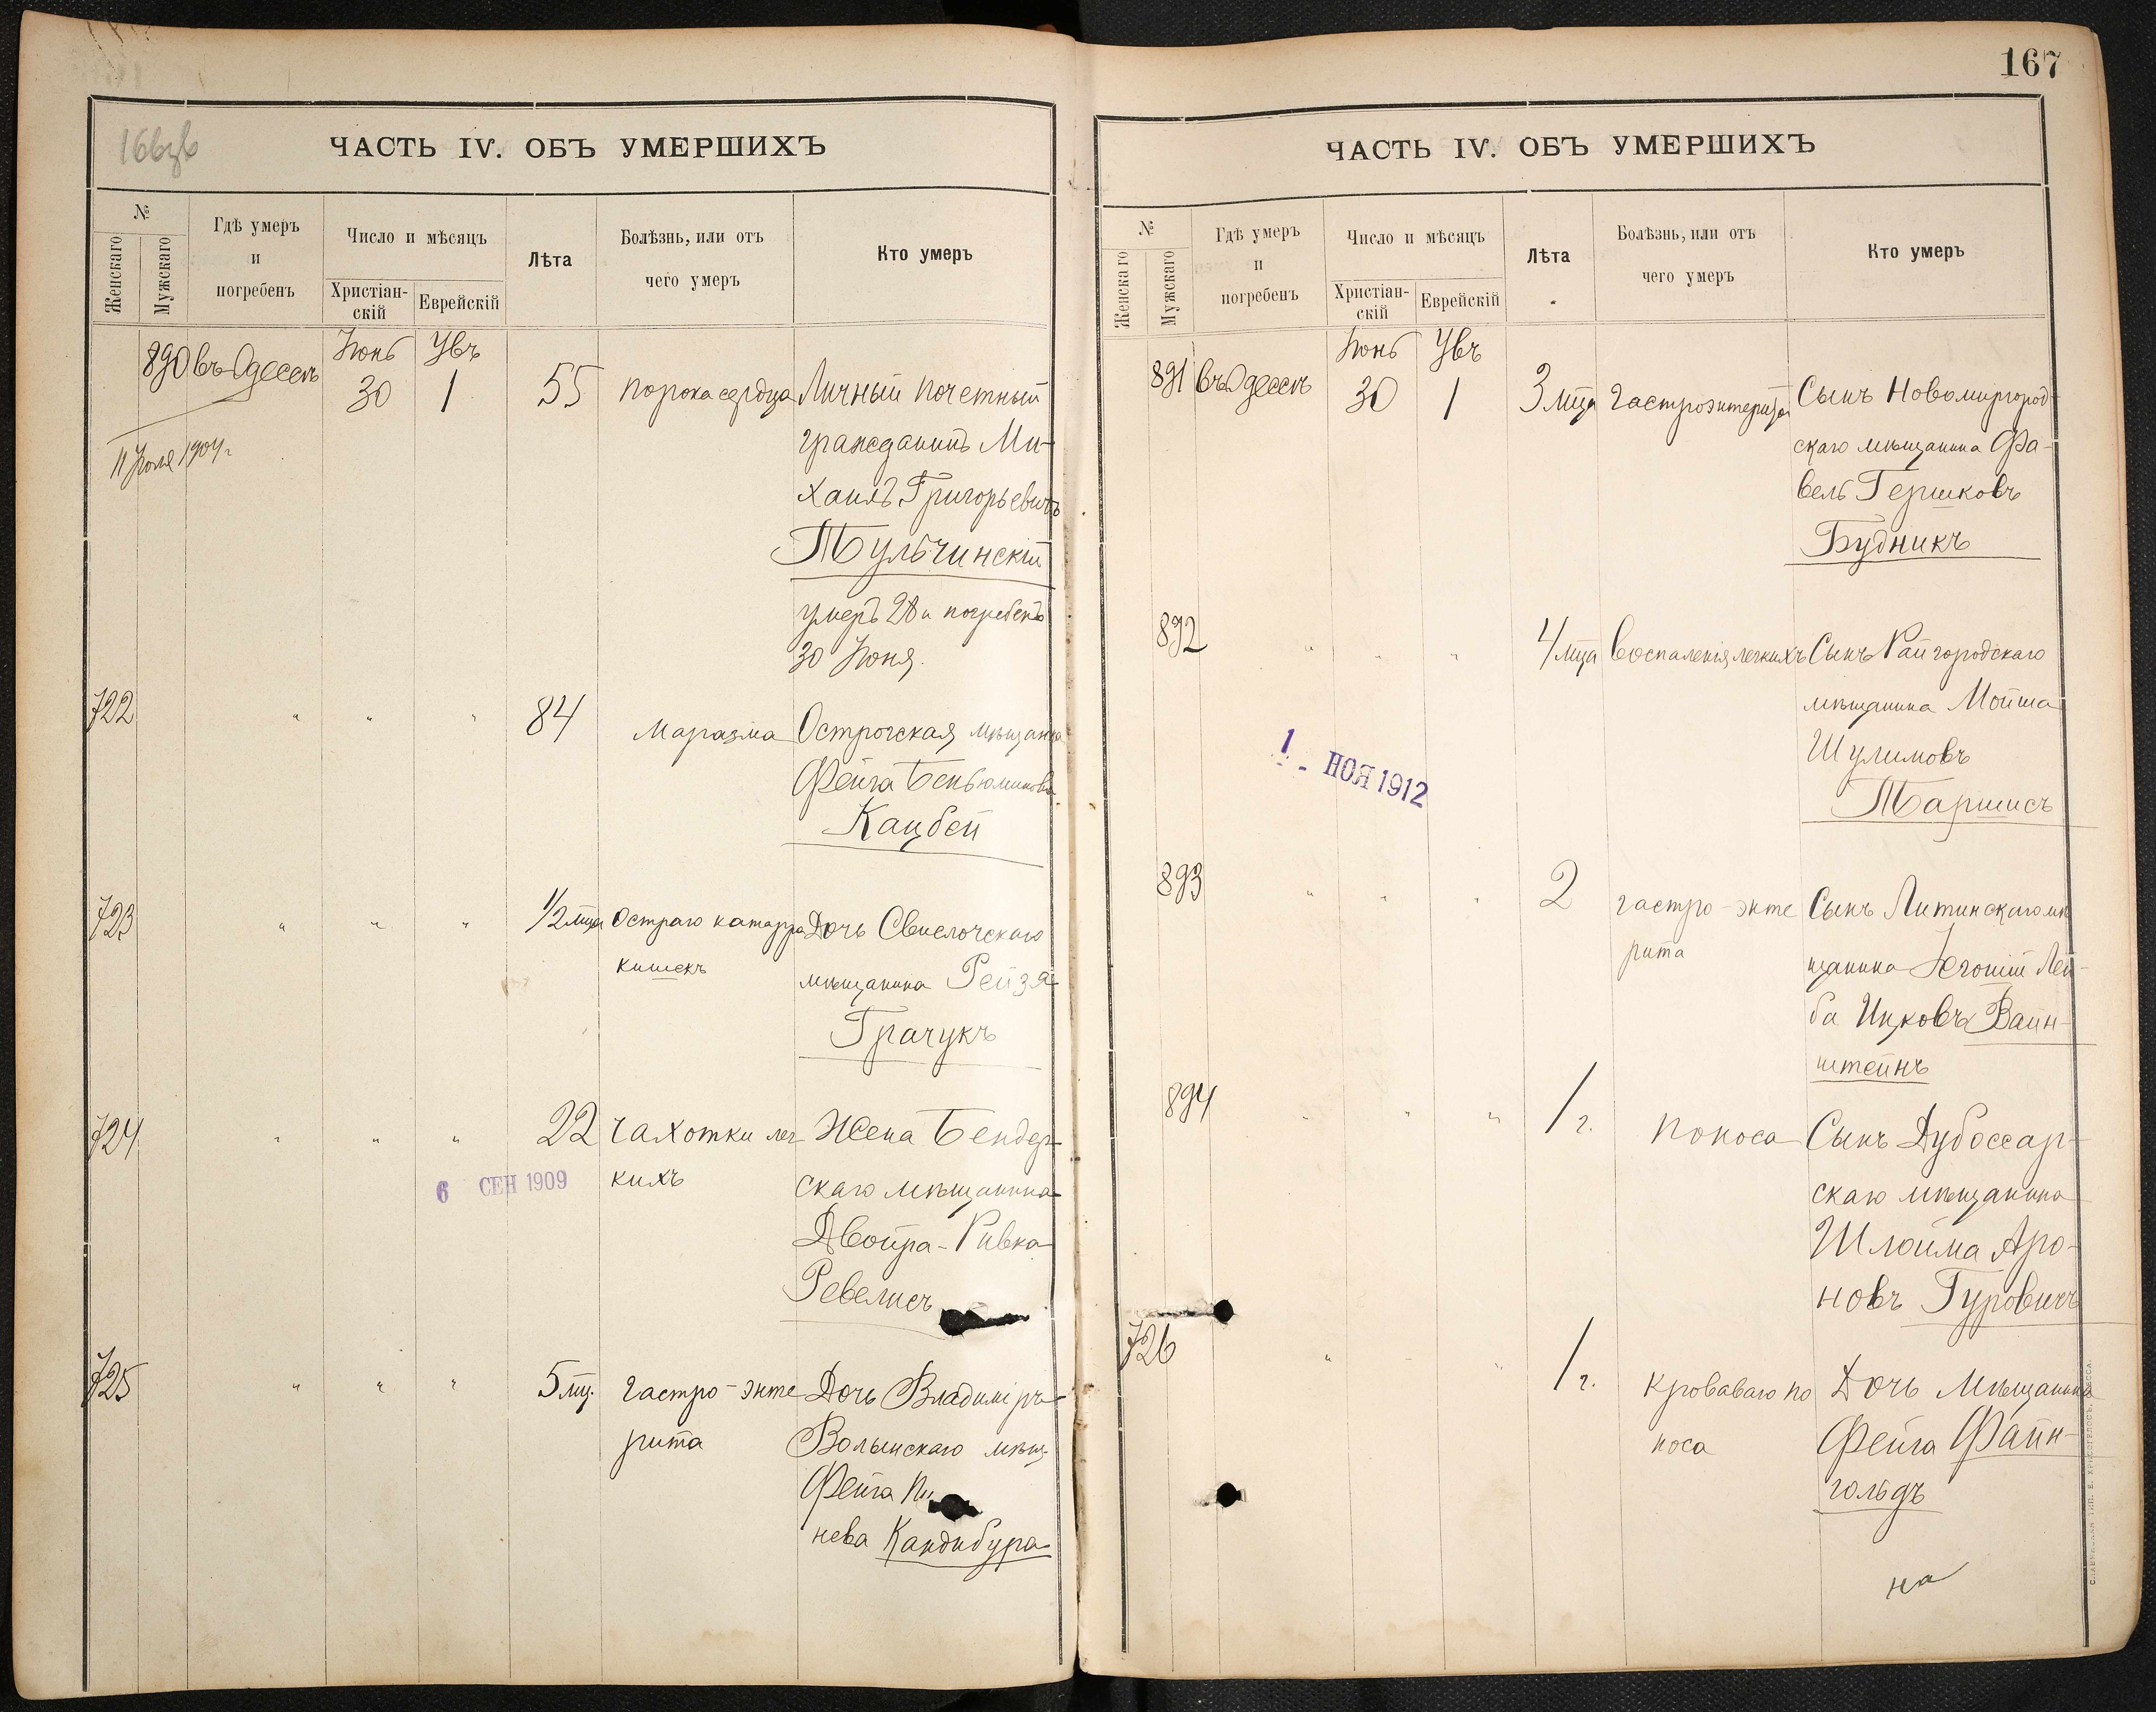 ЧАСТЬ IV. ОБЪ УМЕРШИХЪ
№
Женскаго
Мужскаго
Гдѣ умеръ
и
погребенъ
Число и мѣсяцъ
Христіан-
скій
Еврейскій
Лѣта
Болѣзнь, или отъ
чего умеръ
Кто умеръ
890 въ Одессѣ
Іюнь
30
1
55
порока сердца
Личный почетный
гражданинъ Ми-
хаилъ Григорьевичъ
Тульчинскій
умеръ 28 и погребенъ
30 Іюня.
11 Іюля 1904 г
722
" " "
84
Маразма
Острогская мѣщанка
Фейга Беньюминова
Кацбей
723
" " "
1/2 мца
Остраго катарра
кишекъ
Дочь Свислочскаго
мѣщанина Рейзя
Грачукъ
724
" " "
22
Чахотки лег
кихъ
Жена Бендер-
скаго мѣщанина
Двойра-Ривка
Ревелисъ
6 СЕН 1909
725
" " "
5 мц.
Гастро-энте
рита
Дочь Владиміръ-
Волынскаго мѣщ.
Фейга
нева Кандибура
167
ЧАСТЬ IV. ОБЪ УМЕРШИХЪ
№
Женскаго
Мужскаго
Гдѣ умеръ
и
погребенъ
Число и мѣсяцъ
Христіан-
скій
Еврейскій
Лѣта
Болѣзнь, или отъ
чего умеръ
Кто умеръ
891 въ Одессѣ
Іюнь
30
1
3 мца
Гастроэнтерита
Сынъ Новомиргород-
скаго мѣщанина Фа-
вель Гершковъ
Будникъ
892
" " "
4 мца
Воспаленія легкихъ
Сынъ Райгородскаго
мѣщанина Мойша
Шулимовъ
Таршисъ
1 - НОЯ 1912
893
" " "
2
гастро-энте
рита
Сынъ Литинскаго мѣ
щанина Лей-
ба Ицковъ Вайн-
штейнъ
894
" " "
1 г.
поноса
Сынъ Дубоссар-
скаго мѣщанина
Шлойма Аро-
новъ Гуровичъ
726
" " "
1 г.
Кроваваго по
носа
Дочь мѣщанина
Фейга Файн-
гольдъ
на